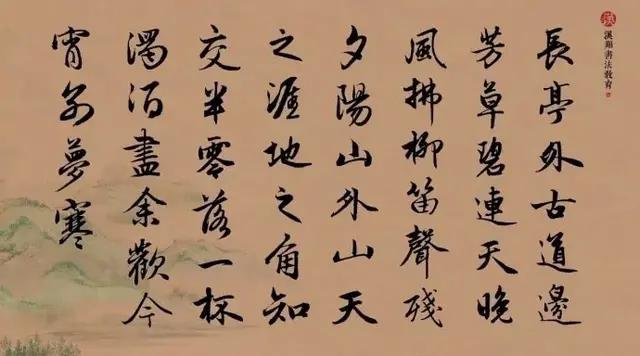 長亭外古道邊
芳草碧連天晚
風拂柳笛聲殘
夕陽山外山天
之涯地之角知
交半零落一杯
濁酒盡余歡今
宵別夢寒
漢翔書法教育